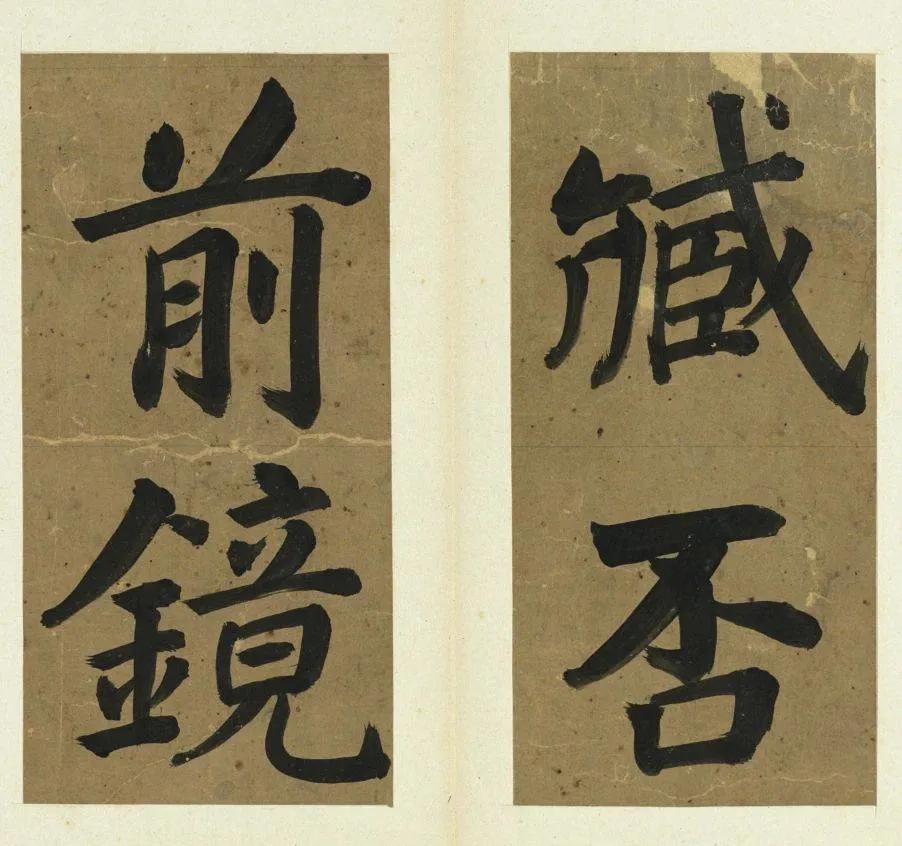 臧否
前鏡